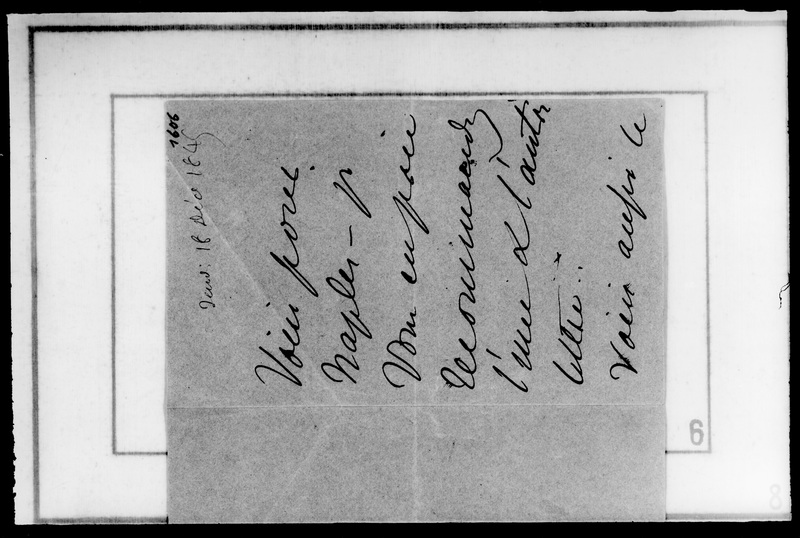 1606
18 Déc 184
Voici pour
Naples – je
Vous en prie
recommandez
l'une & l'autre
lettre.
Voici aussi le
6
8